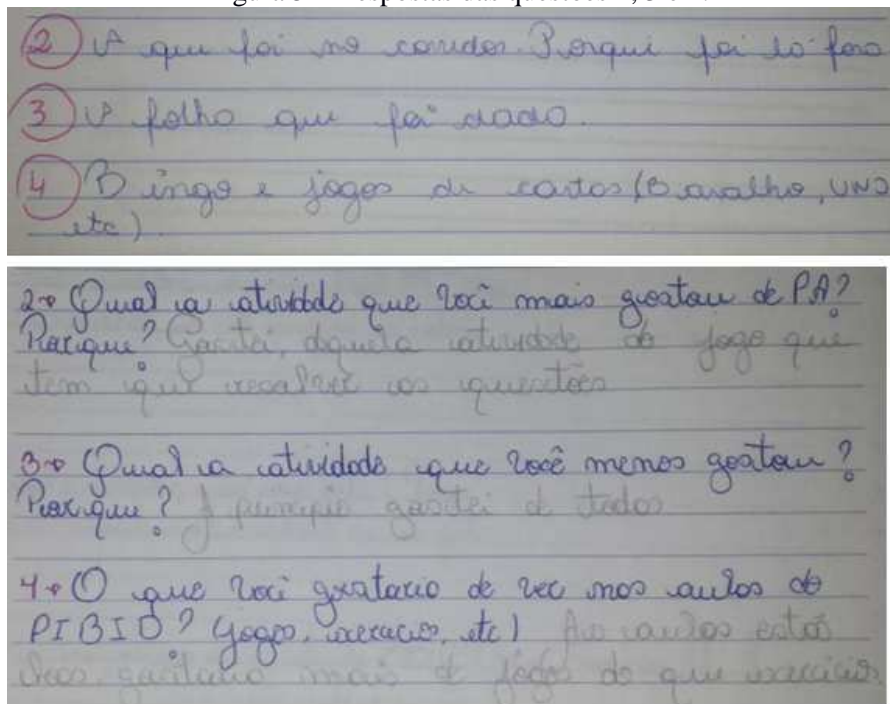 2) A que foi no corredor. Porqui foi lá fora
3) A folha que foi dado.
4) Bingo e jogos de cartas (Baralho, UNO
etc)
2- Qual a atividade que você mais gostou de PA?
Porque? Gostei, daquela atividade do jogo que
tem que resolver as questões
3- Qual a atividade que você menos gostou?
Por que? A principio gostei de todas
4- O que você gostaria de ver nas aulas do
PIBID? (Jogos, exercicios, etc) As aulas estão
boas, gostaria mais de jogos do que exercicios.